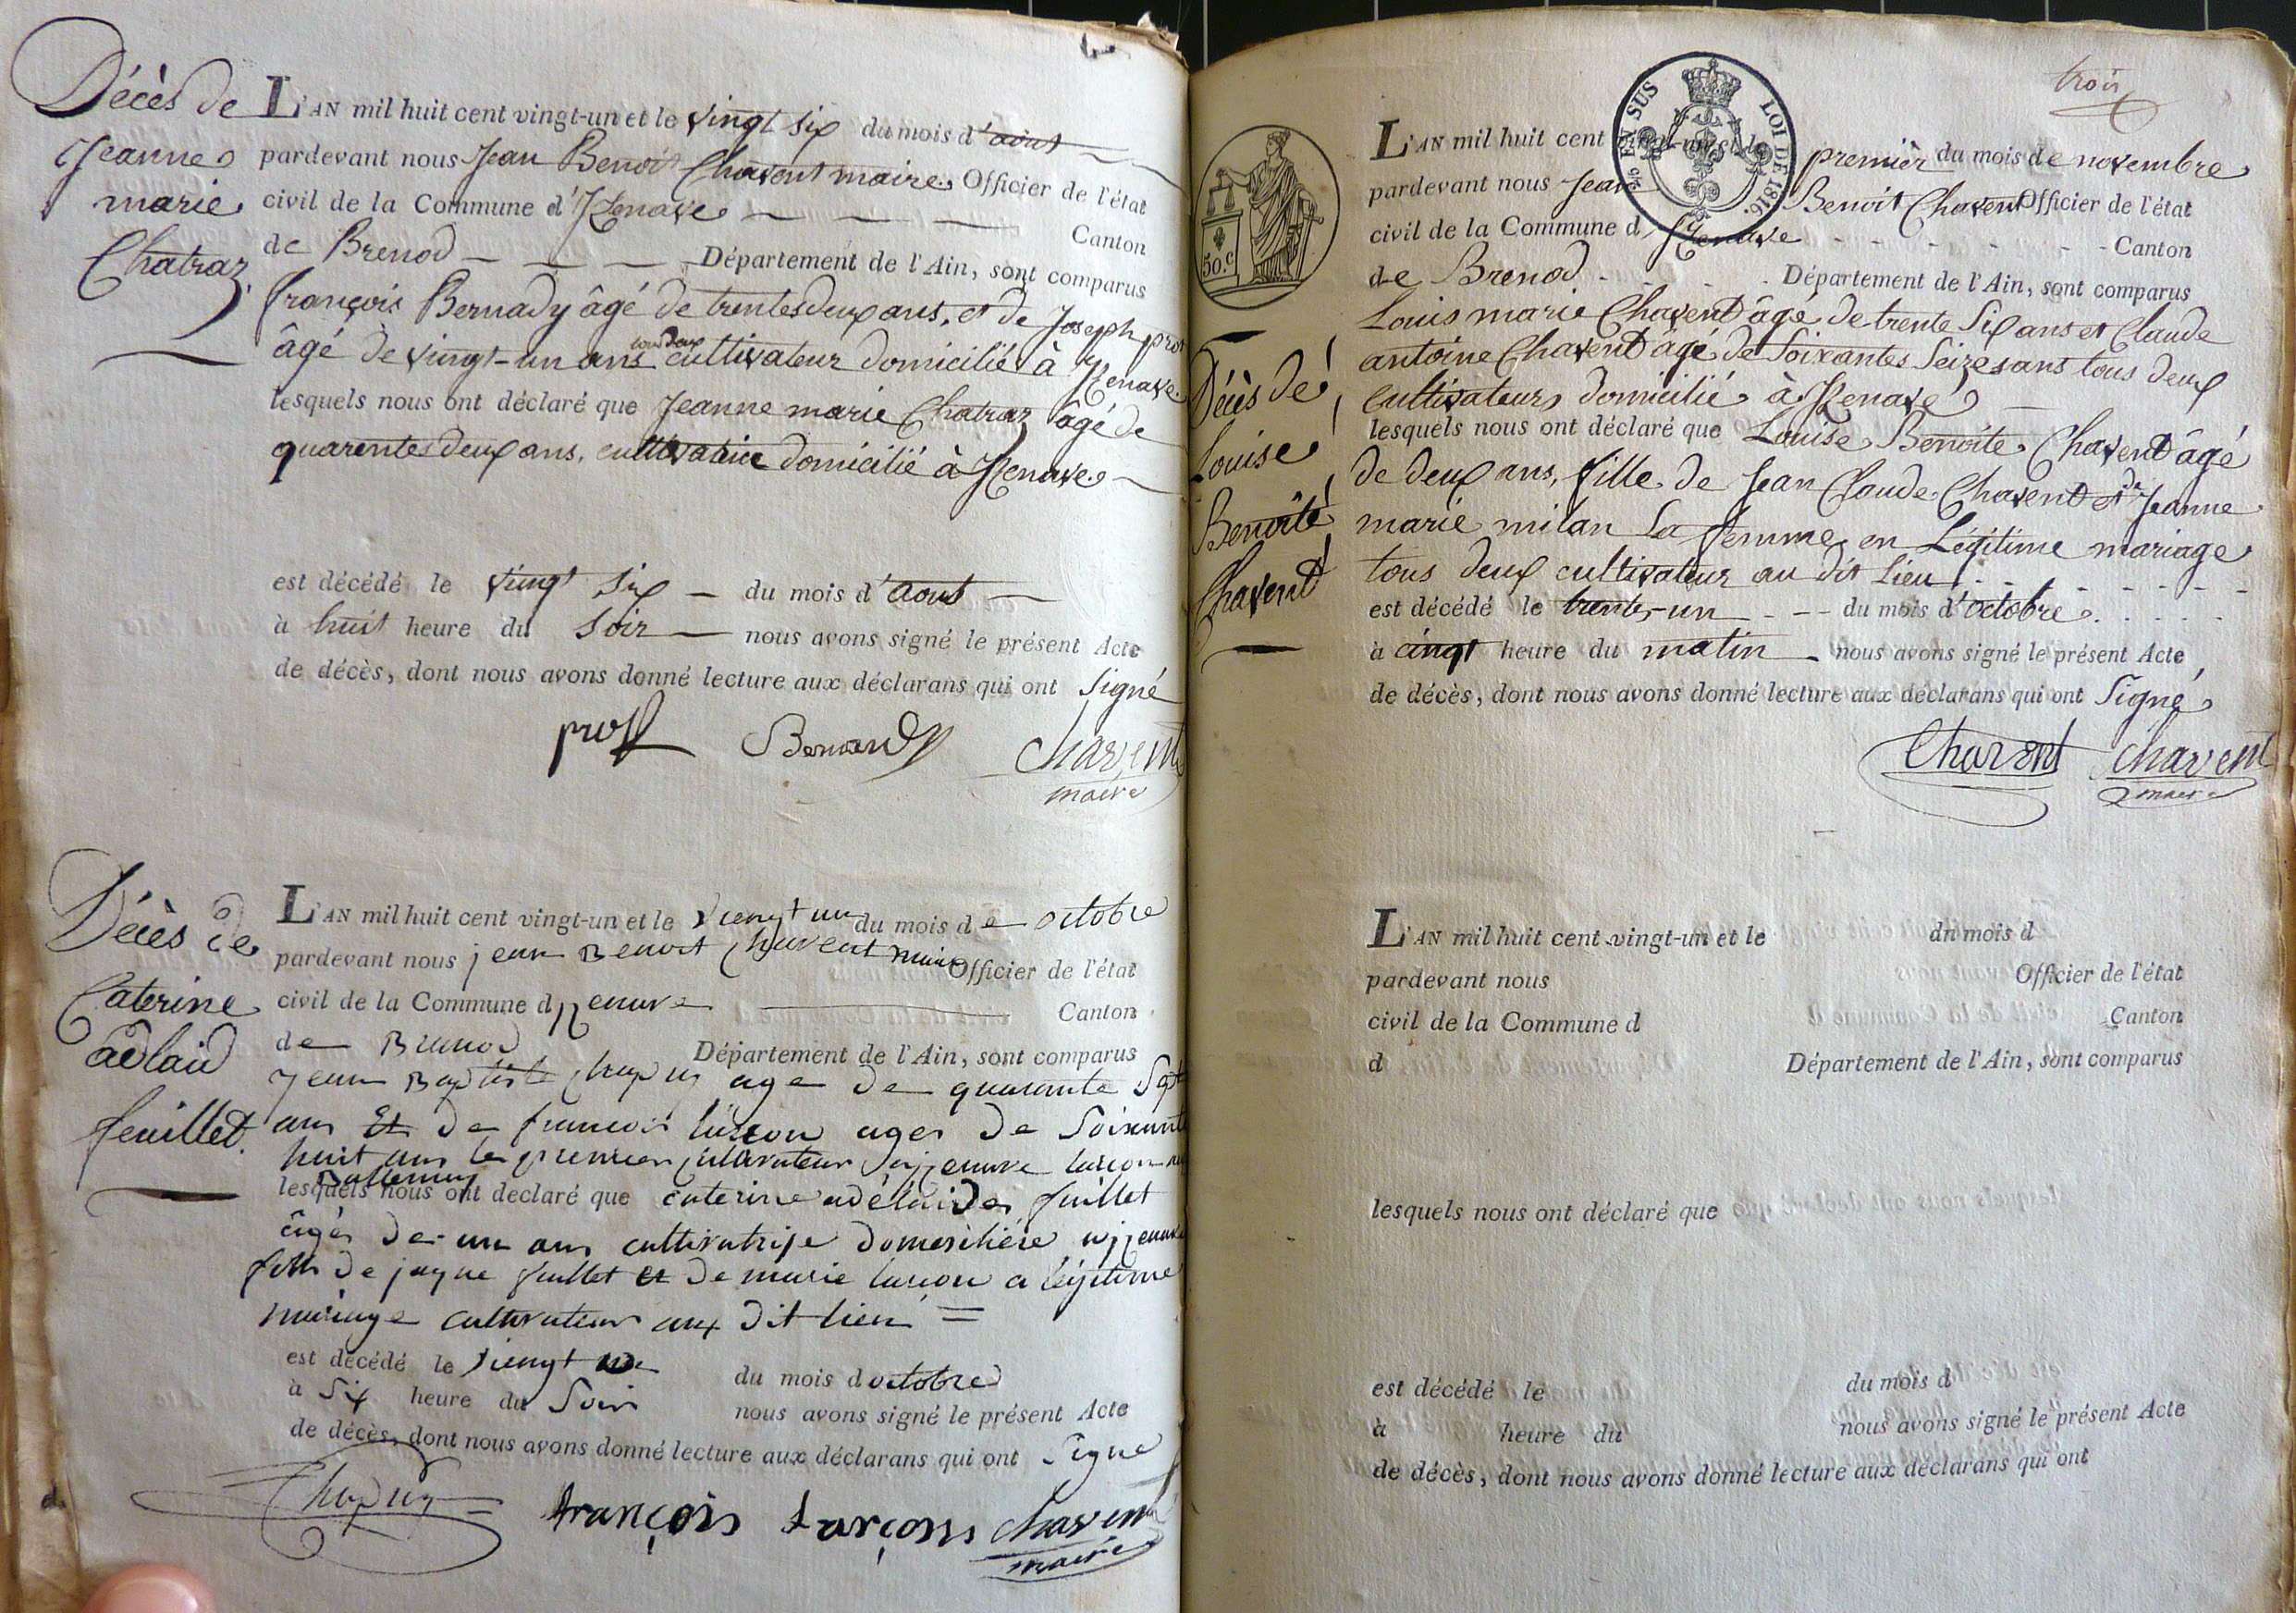 Décès de
Jeanne
marie
Chatraz.
L'AN mil huit cent vingt-un et le vingt six du mois d'aout
pardevant nous Jean Benoit Chavent maire Officier de l'état
civil de la Commune d'Izenave
Canton
de Brenod Département de l'Ain, sont comparus
françois Bernady âgé de trentes deux ans, et de Joseph pros
âgé de vingt-un ans tous deux cultivateur domicilié à Izenave
lesquels nous ont déclaré que Jeanne marie Chatraz âgé de
quarentes deux ans, cultivatrice domicilié à Izenave
est décédé le vingt six du mois d'aout
à huit heure du soir nous avons signé le présent Acte
de décès, dont nous avons donné lecture aux déclarans qui ont signé
prost Bernardy Chavent
maire
Décès de
Caterine
adlaid
feuillet.
L'AN mil huit cent vingt-un et le viengt un du mois de octobre
pardevant nous jean Benoit Chavent maire Officier de l'état
civil de la Commune d izenave Canton
de Brenod
Département de l'Ain, sont comparus
jean Baptiste age de quarante sept
ans Et de francois agés de soixante
huit ans le premier cultivateur
lesquels nous ont declaré que caterine adélaide fuillet
âgés de un ans cultivatrise
de fuillet et de marie a légitime
mariage cultivateur aux dit lieu =
est décédé le viengt un
du mois d octobre
à six heure du soir
nous avons signé le présent Acte
de décès, dont nous avons donné lecture aux déclarans qui ont signe
françois Larçons Chavent
maire
trois
% EN SUS LOI DE 1816.
50.c
Décès de
Louise
Benoîte
Chavent
L'AN mil huit cent vingt-un et le premièr du mois de novembre
pardevant nous Jean Benoit Chavent Officier de l'état
civil de la Commune d'Izenave Canton
de Brenod Département de l'Ain, sont comparus
Louis marie Chavent âgé de trente six ans et Claude
antoine Chavent âgé de soixantes seizes ans tous deux
cultivateurs domicilié à Izenave
lesquels nous ont déclaré que Louise Benoite Chavent âgé
de deux ans, fille de Jean Claude Chavent et de Jeanne
marie milan sa femme en Légitime mariage
tous deux cultivateur au dit lieu
est décédé le trente-un du mois d'octobre
à cinqt heure du matin nous avons signé le présent Acte
de décès, dont nous avons donné lecture aux déclarans qui ont signé
Chavent Chavent
maire
L'AN mil huit cent vingt-un et le du mois d
pardevant nous Officier de l'état
civil de la Commune d Canton
d Département de l'Ain, sont comparus
lesquels nous ont déclaré que
est décédé le du mois d
à heure du nous avons signé le présent Acte
de décès, dont nous avons donné lecture aux déclarans qui ont